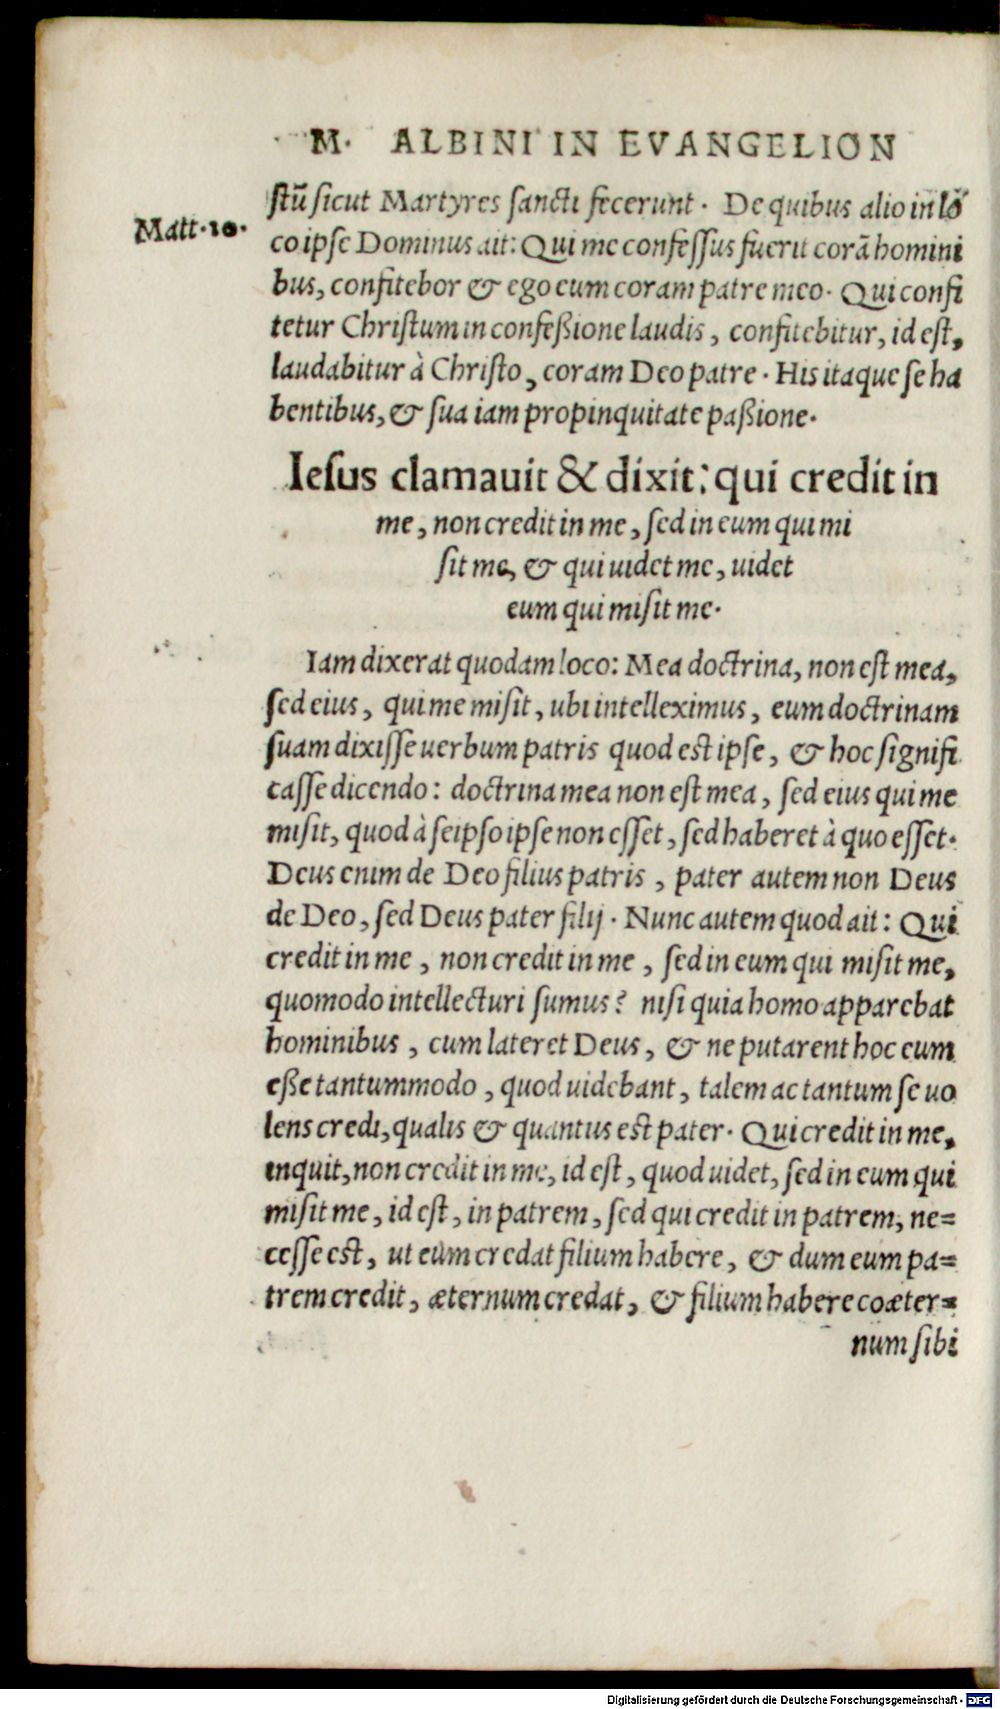 M. ALBINI IN EVANGELION
Matt.10.
ſtũ ſicut Martyres ſancti fecerunt. De quibus alio in lo
co ipſe Dominus ait: Qui me confeſſus fuerit corã homini
bus, confitebor & ego eum coram patre meo. Qui confi
tetur Chriſtum in confeßione laudis, confitebitur, id eſt,
laudabitur à Chriſto, coram Deo patre. His itaque ſe ha
bentibus, & ſua iam propinquitate paßione.
Ieſus clamauit & dixit: qui credit in
me, non credit in me, ſed in eum qui mi
ſit me, & qui uidet me, uidet
eum qui miſit me.
Iam dixerat quodam loco: Mea doctrina, non eſt mea,
ſed eius, qui me miſit, ubi intelleximus, eum doctrinam
ſuam dixiſſe uerbum patris quod est ipſe, & hoc ſignifi
caſſe dicendo: doctrina mea non eſt mea, ſed eius qui me
miſit, quod à ſeipſo ipſe non eſſet, ſed haberet à quo eſſet.
Deus enim de Deo filius patris, pater autem non Deus
de Deo, ſed Deus pater filij. Nunc autem quod ait: Qui
credit in me, non credit in me, ſed in eum qui miſit me,
quomodo intellecturi ſumus? niſi quia homo apparebat
hominibus, cum lateret Deus, & ne putarent hoc eum
eße tantummodo, quod uidebant, talem ac tantum ſe uo
lens credi, qualis & quantus est pater. Qui credit in me,
inquit, non credit in me, id eſt, quod uidet, ſed in eum qui
miſit me, id eſt, in patrem, ſed qui credit in patrem, ne=
ceſſe est, ut eum credat filium habere, & dum eum pa=
trem credit, æternum credat, & filium habere coæter=
num ſibi
Digitalisierung gefördert durch die Deutsche Forschungsgemeinschaft - DFG